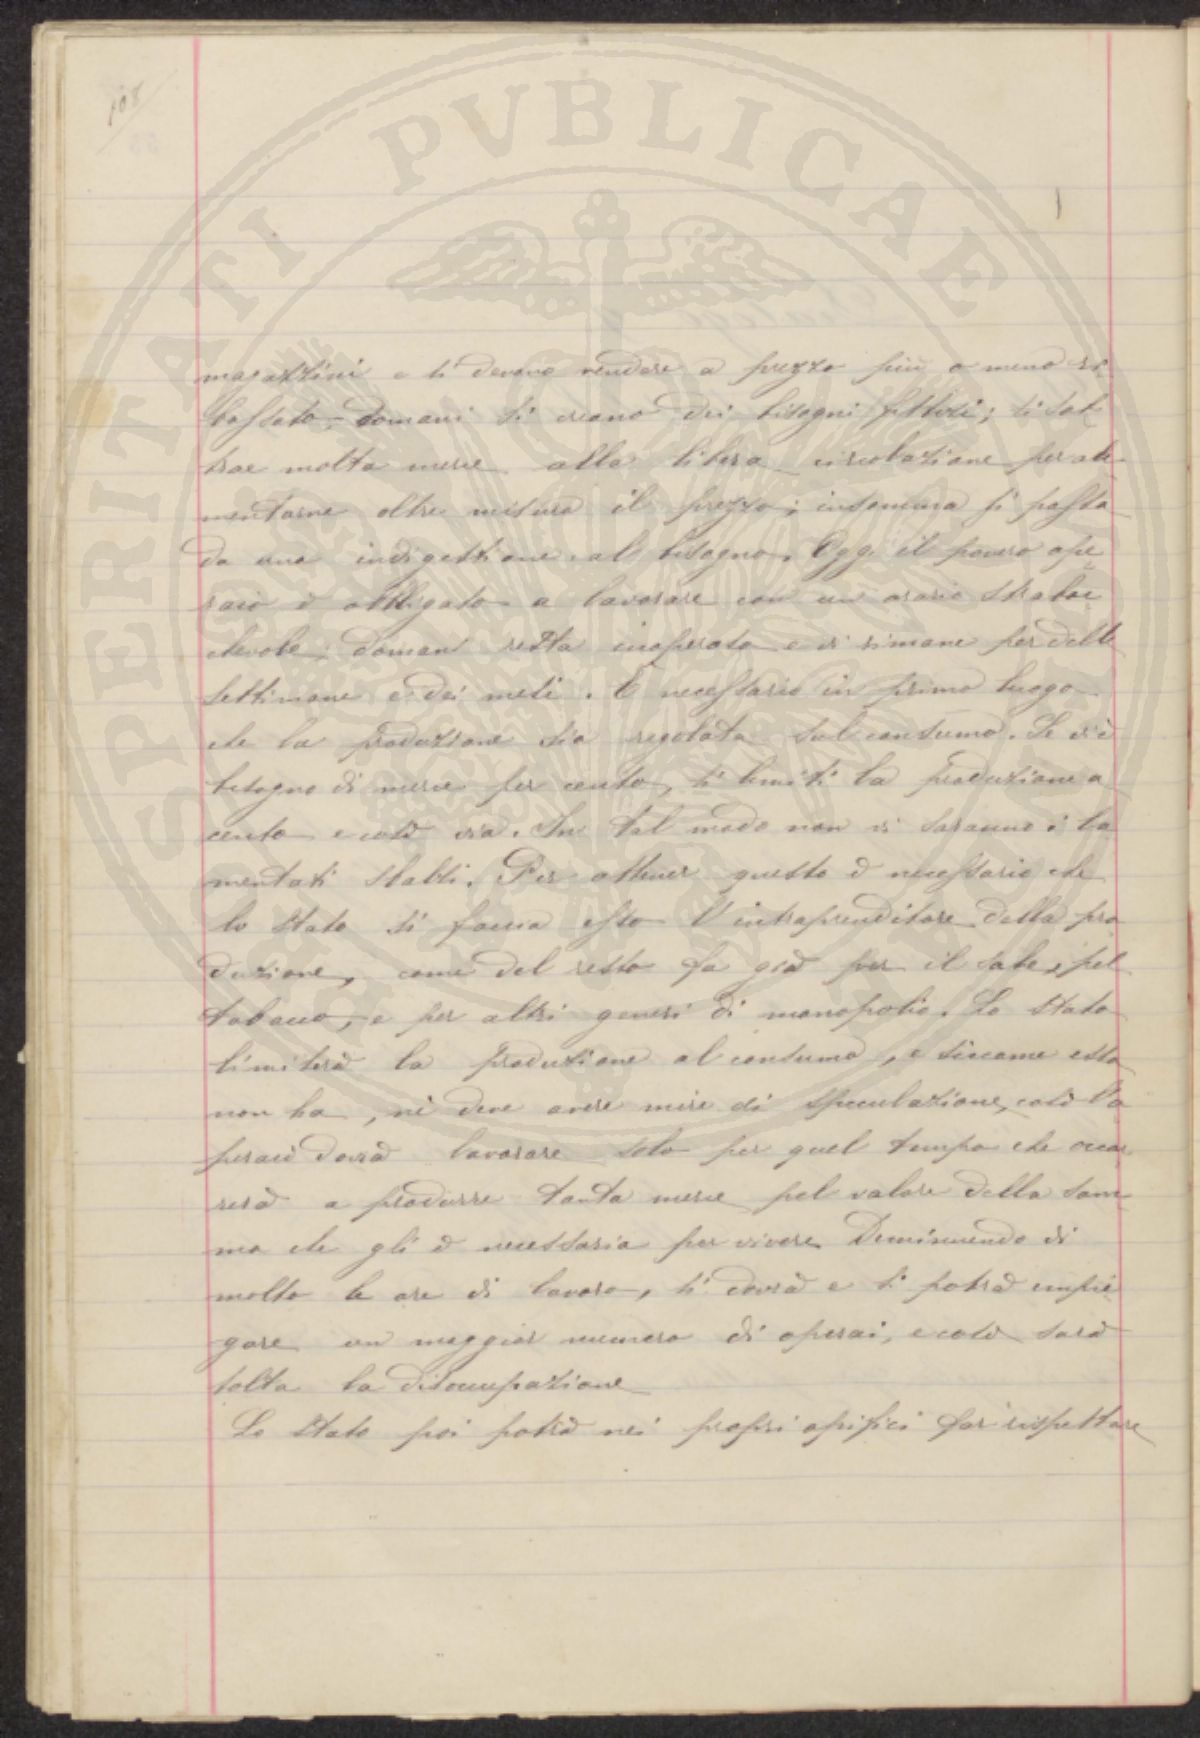 108
magazzini e si devono vendere a prezzo più o meno ri
bassato; domani si creano dei bisogni fittizi; si sot
trae molta merce alla libera circolazione per au
mentarne oltre misura il prezzo; insomma si passa
da una indigestione al bisogno. Oggi il povero ope
raio è obbligato a lavorare con un orario strabo
chevole; domani resta inoperoso e vi rimane per delle
settimane e dei mesi. È necessario in primo luogo
che la produzione sia regolata sul consumo. Se v'è
bisogno di merce per cento, si limiti la produzione a
cento e così via. In tal modo non vi saranno i la
mentati sbalzi. Per ottener questo è necessario che
lo Stato si faccia esso l'intraprenditore della pro
duzione, come del resto fa già per il sale, pel
tabacco, e per altri generi di monopolio. Lo Stato
limiterà la produzione al consumo, e siccome esso
non ha, nè deve avere mire di speculazione, così l'o
peraio dovrà lavorare solo per quel tempo che occor
rerà a produrre tanta merce pel valore della som
ma che gli è necessaria per vivere. Diminuendo di
molto le ore di lavoro, si dovrà e si potrà impie
gare un maggior numero di operai, e così sarà
tolta la disoccupazione
Lo Stato poi potrà nei propri opifici far rispettare
SPERITATI PVBLICAE